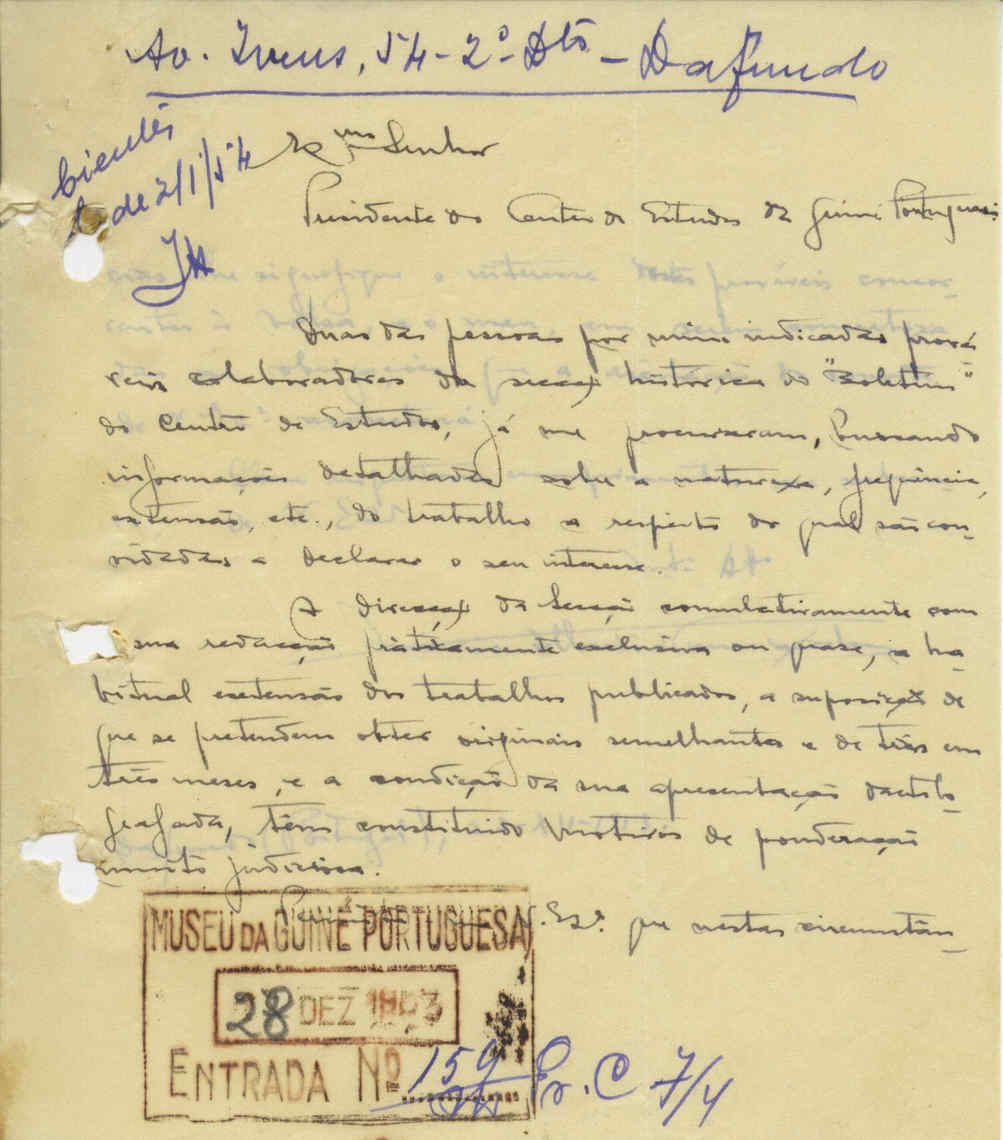 Av. Ivens, 54-2º-Dtº - Dafundo
Ciente
de 2/1/54
JH
Exmo Senhor
Presidente do Centro de Estudos da Guiné Portuguesa
Duas das pessoas por mim indicadas prová-
veis colaboradores da secção histórica do "Boletim"
do Centro de Estudos, já me procuraram, buscando
informações detalhadas sobre a natureza, frequência,
extensão, etc., do trabalho a respeito do qual são con-
vidadas a declarar o seu interesse.
A direcção da Secção cumulativamente com
a sua redacção pràticamente exclusiva ou quase, a ha-
bitual extensão dos trabalhos publicados, a suposição de
que se pretendem obter originais semelhantes e de três em
três meses, e a condição da sua apresentação dactilo-
grafada, têm constituido motivos de ponderação
muito judiciosa.
V. Exª. que nestas circunstân-
MUSEU DA GUINÉ PORTUGUESA
28 DEZ 1953
ENTRADA Nº 159 Pr. C 7/4